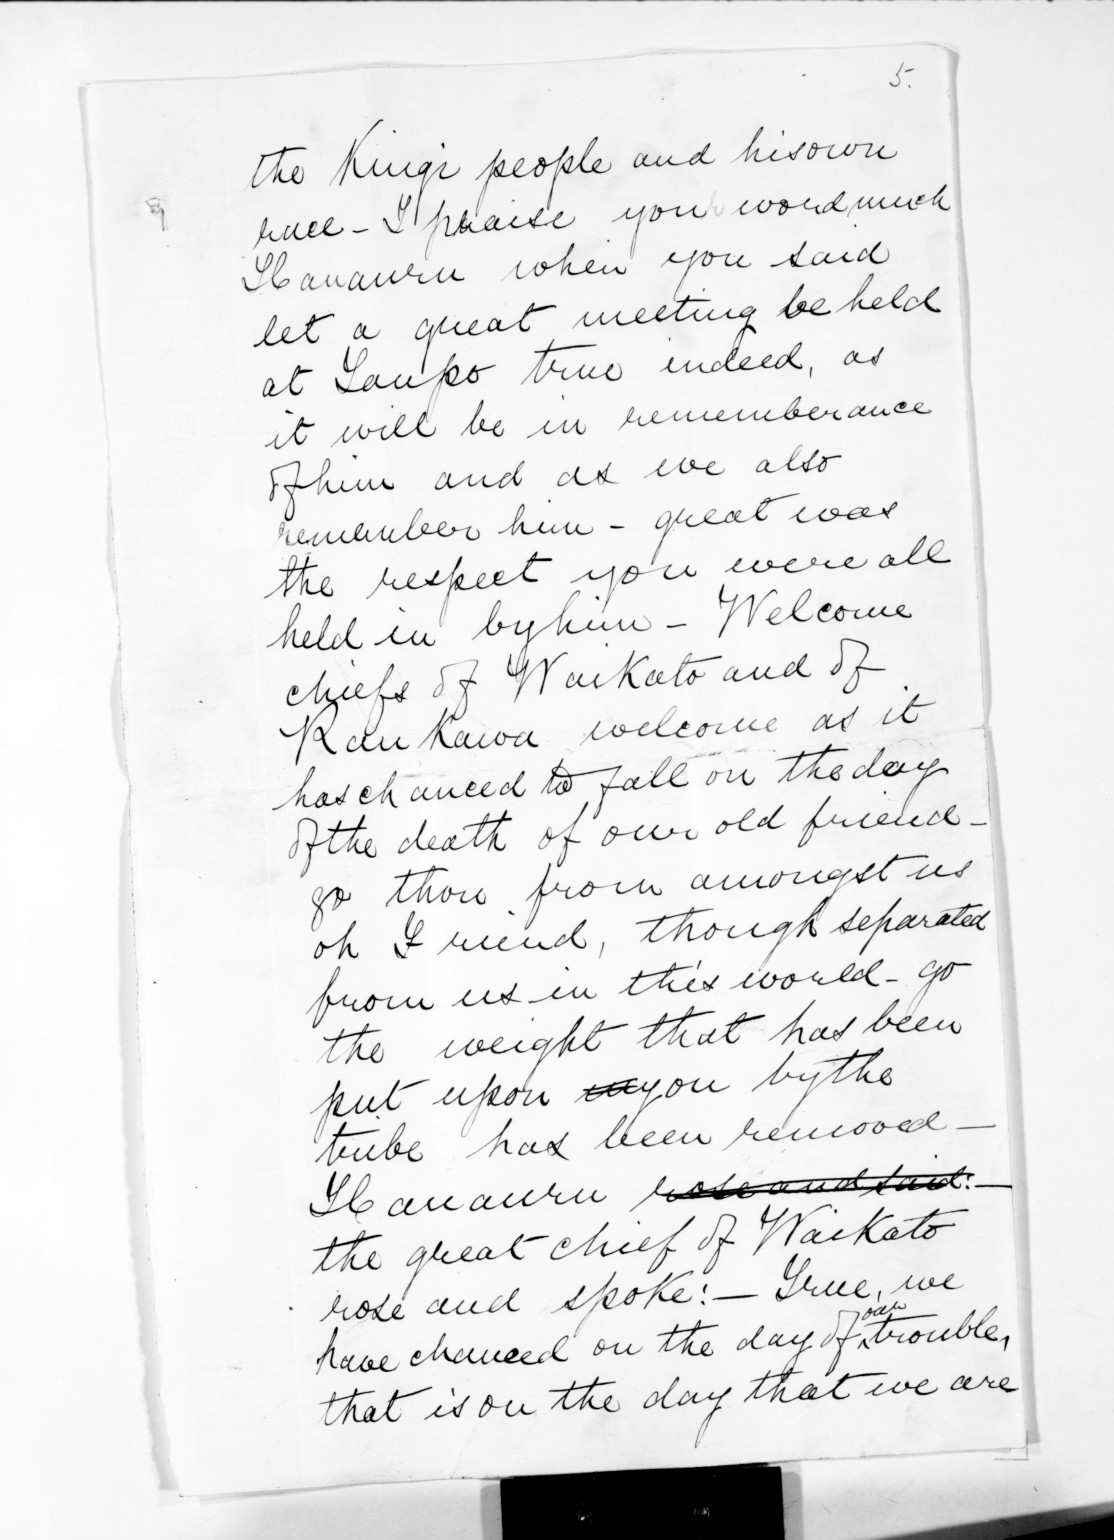 5.
the King's people and his own
race - I praise your word much
Hauauru when you said
let a great meeting be held
at Taupo true indeed, as
it will be in rememberance
of him and as we also
remember him - great was
the respect you were all
held in by him - Welcome
chiefs of Waikato and of
Raukawa welcome as it
has chanced to fall on the day
of the death of our old friend -
go thou from amongst us
oh Friend, though separated
from us in this world - go
the weight that has been
put upon you by the
tribe has been removed -
Hauauru rose and said: -
the great chief of Waikato
rose and spoke: - True, we
have chanced on the day of our trouble,
that is on the day that we are